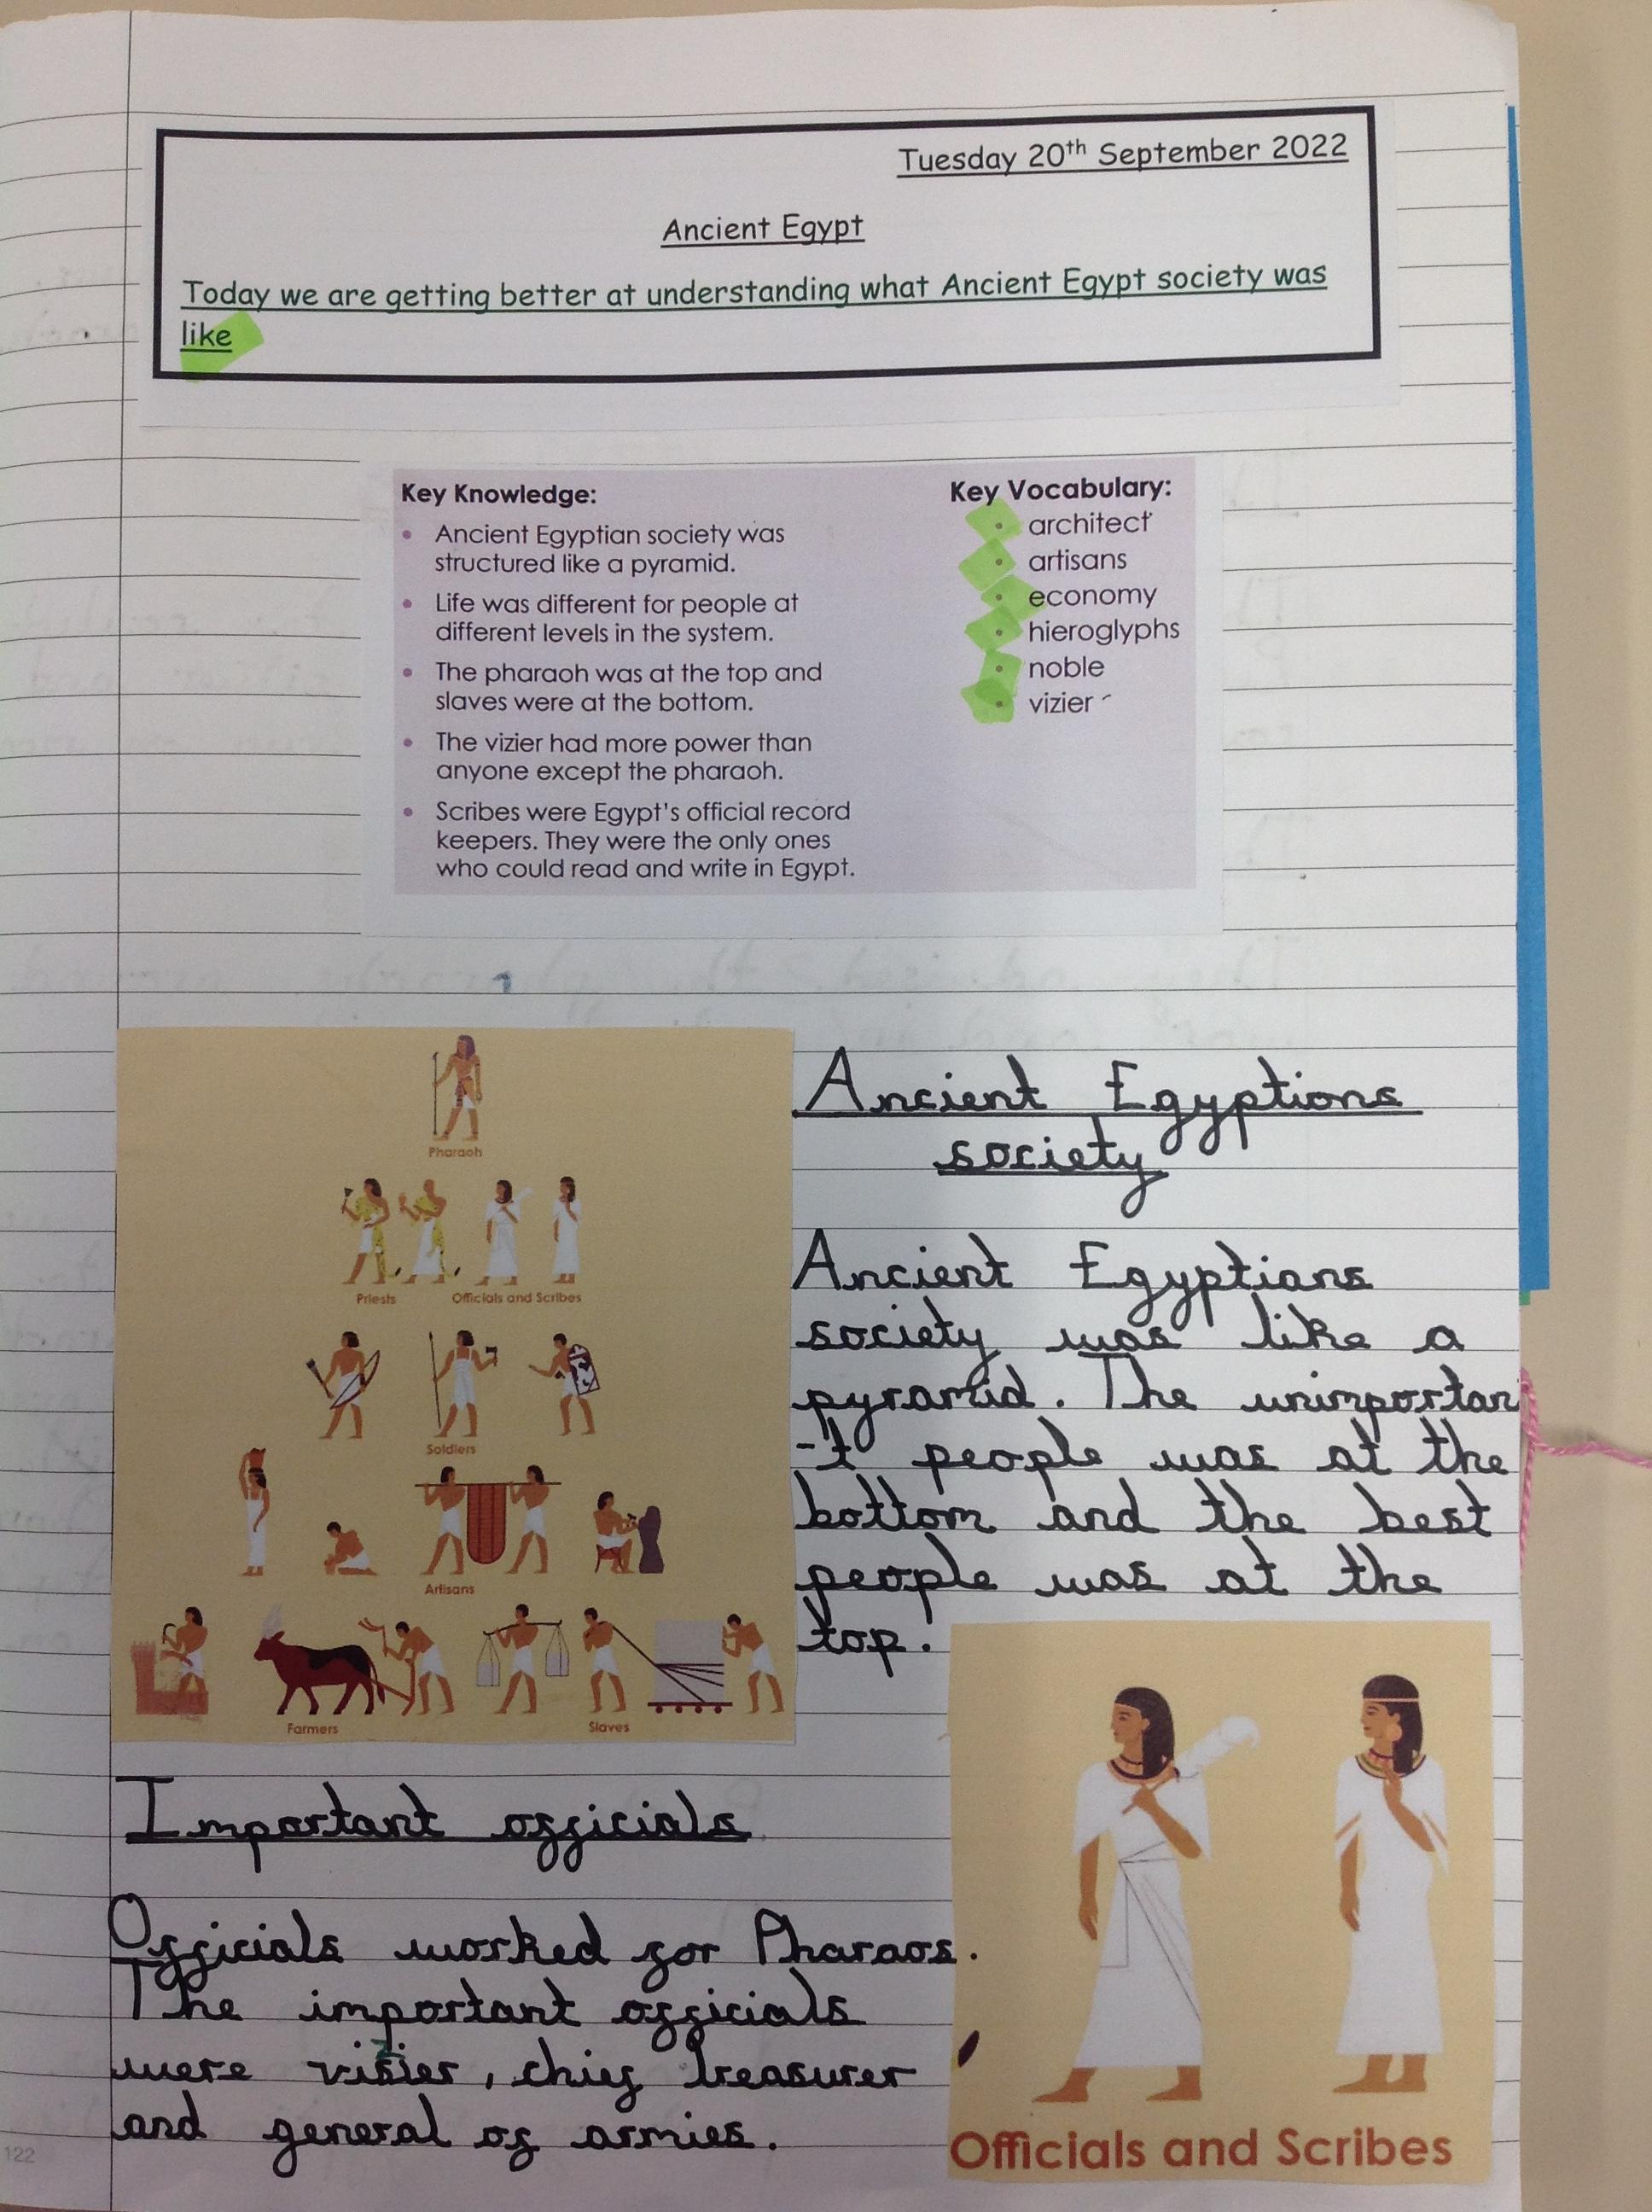 Tuesday 20th September 2022
Ancient Egypt
Today we are getting better at understanding what Ancient Egypt society was
like
Key Knowledge:
• Ancient Egyptian society was
structured like a pyramid.
• Life was different for people at
different levels in the system.
• The pharaoh was at the top and
slaves were at the bottom.
• The vizier had more power than
anyone except the pharaoh.
• Scribes were Egypt's official record
keepers. They were the only ones
who could read and write in Egypt.
Key Vocabulary:
• architect
• artisans
• economy
• hieroglyphs
• noble
• vizier
Pharaoh
Priests Officials and Scribes
Soldiers
Artisans
Farmers Slaves
Ancient Egyptions
society
Ancient Egyptians
society was like a
pyramid. The unimportan
-t people was at the
bottom and the best
people was at the
top.
Important officials
Officials worked for Pharaos.
The important officials
were vizier, chief treasurer
and general of armies.
Officials and Scribes
122